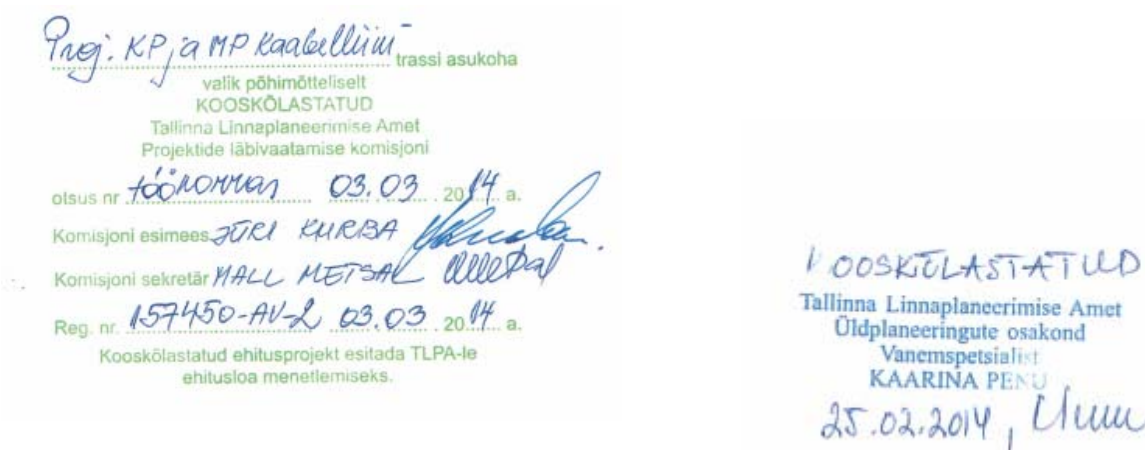 Proj. KP ja MP kaabelliini trassi asukoha
valik põhimõtteliselt
KOOSKÕLASTATUD
Tallinna Linnaplaneerimise Amet
Projektide läbivaatamise komisjoni
otsus nr töökorras 03.03. 2014 a.
Komisjoni esimees JÜRI KURBA
Komisjoni sekretär MALL METSAL
Reg. nr. 157450-AV-2 03.03 . 2014 a.
Kooskõlastatud ehitusprojekt esitada TLPA-le
ehitusloa menetlemiseks.
KOOSKÕLASTATUD
Tallinna Linnaplaneerimise Amet
Üldplaneeringute osakond
Vanemspetsialist
KAARINA PENU
25.02.2014,